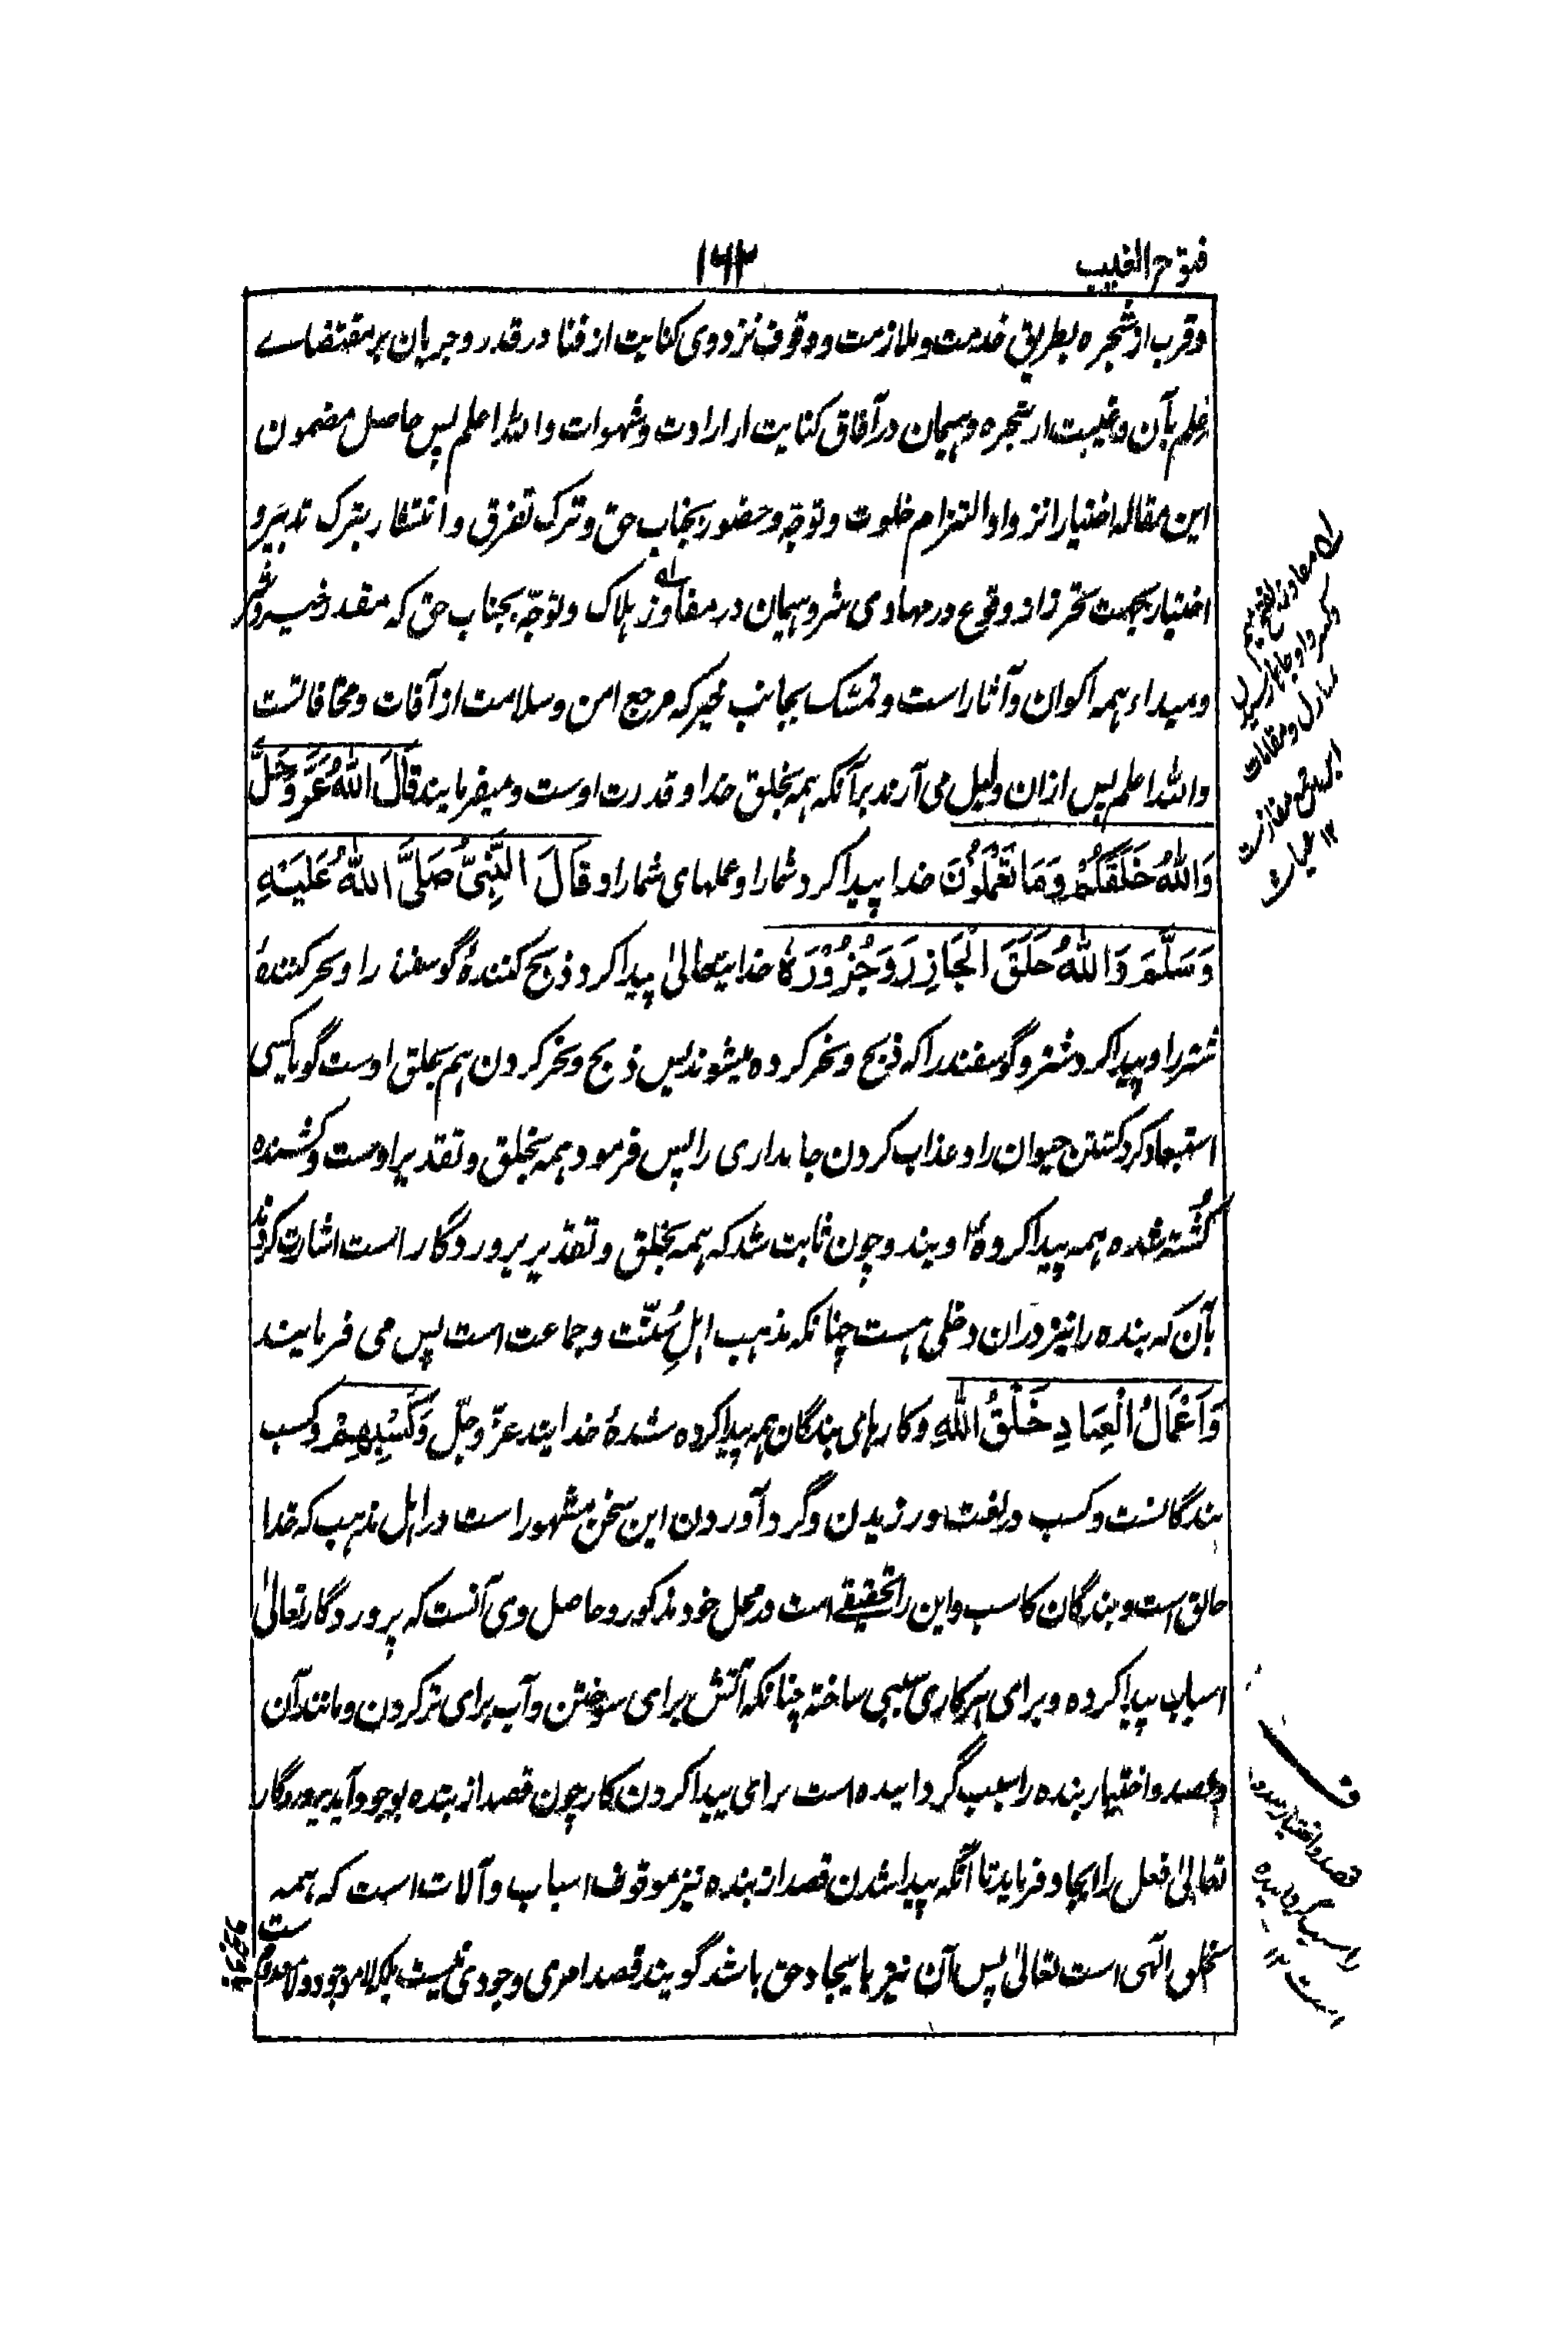 فتوح الغیب
۱۶۳
و قرب از شجره بطریق خدمت و ملازمت و وقوف نزد وی کنایت از فنا در قدر و جریان بر مقتضاے
علم بآن و غیبت از شجره و هیمان در آفاق کنایت از ارادت و شهوات والله اعلم پس حاصل مضمون
این مقاله اختیار انزوا و التزام خلوت و توجّه و حضور بجناب حق و ترک تفرق و انتشار بترک تدبیر و
اختیار بجهت تحرز از وقوع در مهاوی شر و هیمان در مفاوز هلاک و توجّه بجناب حق که مقدر خیر و شر
و مبداء همه اکوان و آثار است و تمسک بجانب خیر که مرجع امن و سلامت از آفات و مخافاتست
والله اعلم پس ازان دلیل می آرند برآنکه همه بخلق خدا و قدرت اوست و میفرمایند قَالَ اللهُ عَزَّ وَجَلَّ
وَاللهُ خَلَقَكُمْ وَمَا تَعْمَلُوْنَ خدا پیدا کرد شما را و عملهای شما را و قَالَ النَّبِيُّ صَلَّى اللهُ عَلَيْهِ
وَسَلَّمَ وَاللهُ خَلَقَ الْجَازِرَ وَجُزُوْرَهٗ خدایتعالیٰ پیدا کرد ذبح کنندهٔ گوسفند را و نحر کنندهٔ
شتر را و پیدا کرد شتر و گوسفند را که ذبح و نحر کرده میشوند پس ذبح و نحر کردن هم بخلق اوست گویا کسی
استبعاد کرد کشتن حیوان را و عذاب کردن جانداری را پس فرمود همه بخلق و تقدیر اوست و کشنده
کُشته شده همه پیدا کردهٔ اویند و چون ثابت شد که همه بخلق و تقدیر پروردگار است اشارت کردند
بآن که بنده را نیز دران دخلی هست چنانکه مذهب اهلِ سُنّت و جماعت است پس می فرمایند
وَاَعْمَالُ الْعِبَادِ خَلْقُ اللهِ و کارهای بندگان همه پیدا کرده شدهٔ خدایند عزّ و جلّ وَكَسْبِهِمْ و کسب
بندگانست و کسب در لغت ورزیدن و گرد آوردن این سخن مشهور است در اهل مذهب که خدا
خالق است و بندگان کاسب و این را تحقیقے است در محل خود مذکور و حاصل وی آنست که پروردگار تعالیٰ
اسباب پیدا کرده و برای هر کاری سببی ساخته چنانکه آتش برای سوختن و آب برای تر کردن و مانند آن
و قصد و اختیار بنده را سبب گردانیده است برای پیدا کردن کار چون قصد از بنده بوجود آید پروردگار
تعالیٰ فعل را ایجاد فرماید تا آنکه پیدا شدن قصد از بنده نیز موقوف اسباب و آلات است که همه
بخلق الٓهی است تعالیٰ پس آن نیز بایجاد حق باشد گویند قصد امری وجودی نیست بلکه لا موجود و لا معدوم ست
منازل و مقامات
ف
قصد و اختیار بنده را
سبب گردانیده
است ۱۲